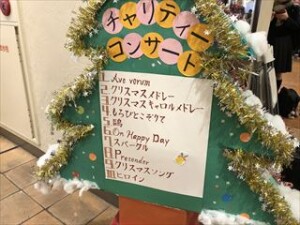 チャリティー
コンサート
1. Ave verum
2. クリスマスメドレー
3. クリスマスキャロルメドレー
4. もろびとこぞりて
5. 鷗
6. On Happy Day
7. スパークル
8. Pretender
9. クリスマスソング
10. ヒロイン